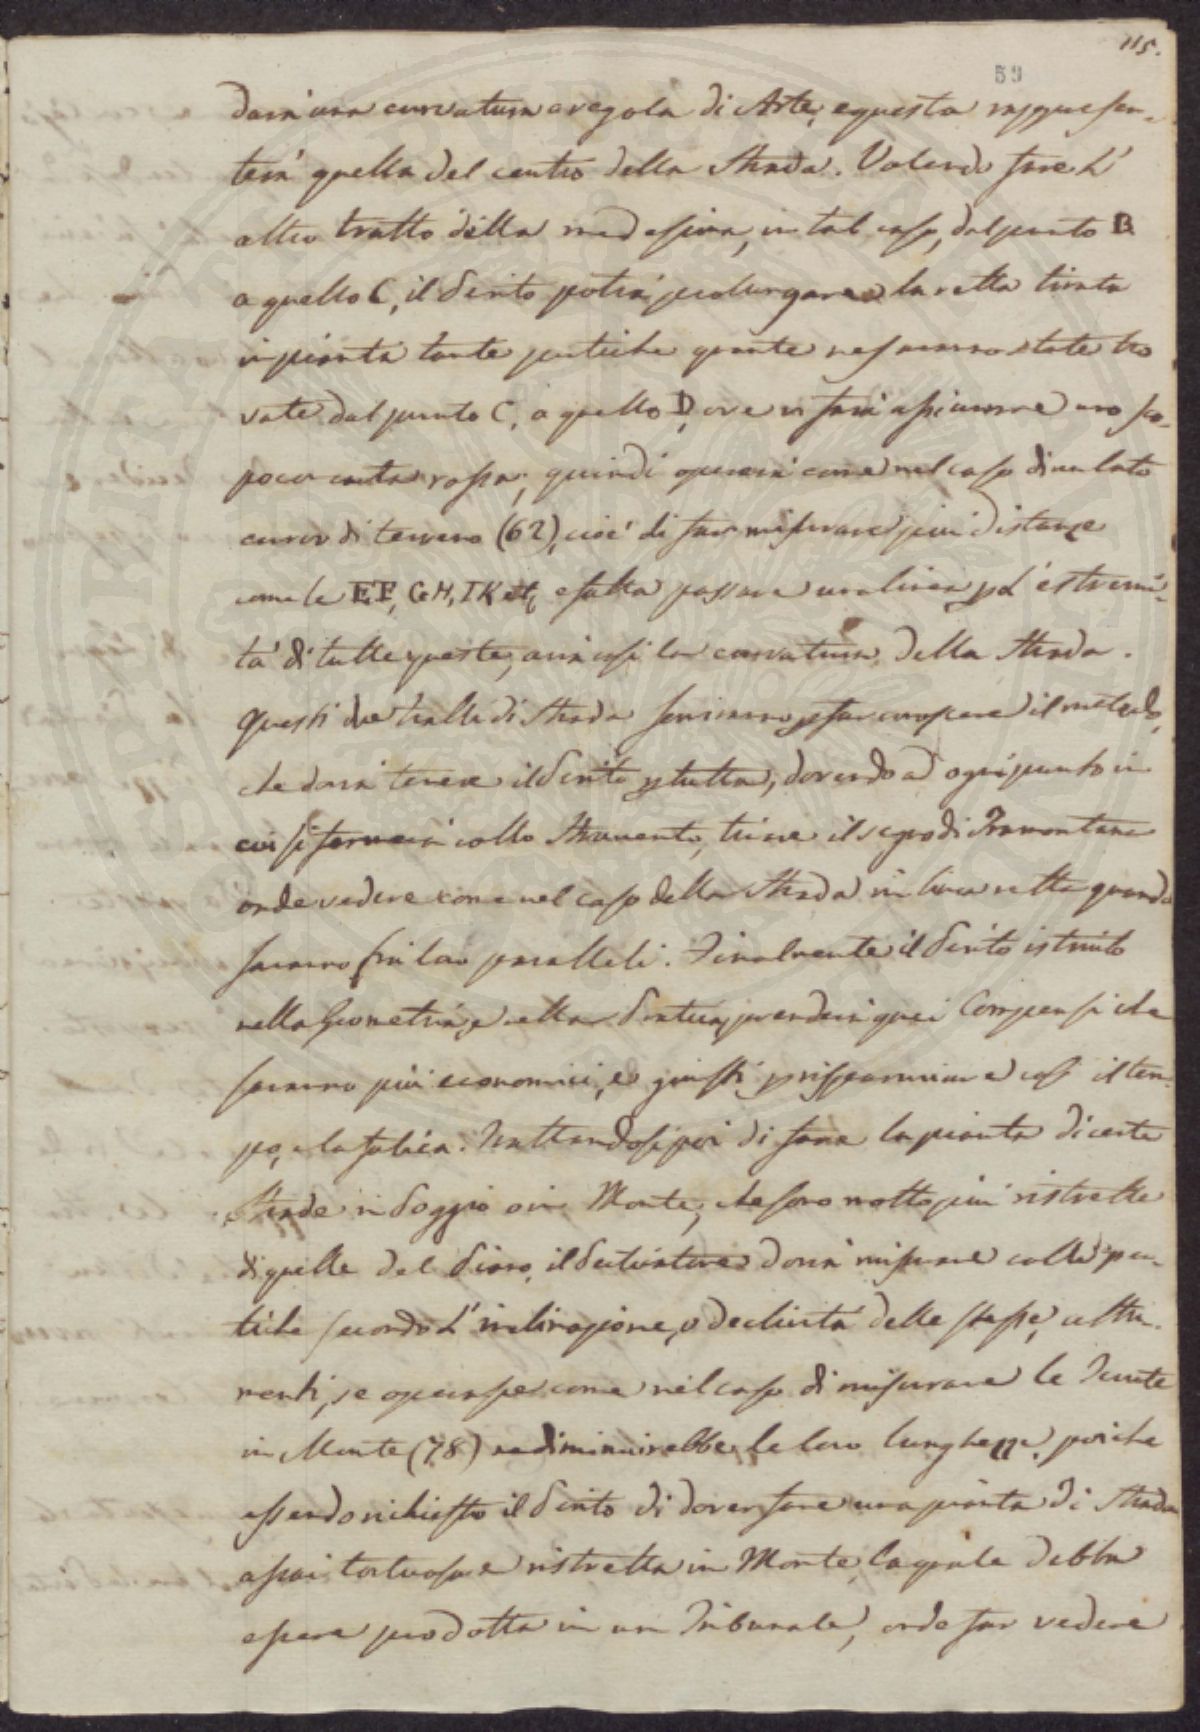 115.
59
darà una curvatura a regola di Arte, e questa rappresen-
terà quella del centro della Strada. Volendo fare l'
altro tratto della medesima, in tal caso, dal punto B
a quello C, il Perito potrà prolungare la retta tirata
in pianta tante pertiche quante ne saranno state tro
vate dal punto C, a quello D, ove vi farà assicurare uno sco-
poco carta rossa; quindi opererà come nel caso di un lato
curvo di terreno (62), cioè di far misurare più distanze
come le EF, GH, IK etc, e fatta passare una linea p. l'estremi-
tà di tutte queste, avrà così la curvatura della Strada.
Questi due tratti di Strada serviranno p far conoscere il metodo,
che dovrà tenere il Perito p tutta, dovendo ad ogni punto in
cui si fermerà collo Strumento, tirare il segno di Tramontana
onde vedere come nel caso della Strada in linea retta quando
saranno fra loro paralleli. Finalmente il Perito istruito
nella Geometria, e nella Pratica, prenderà quei Compensi che
saranno più economici, e giusti p risparmiare così il tem-
po, e la fatica. Trattandosi poi di fare la pianta di certe
Strade in Poggio o in Monte, che sono molto più ristrette
di quelle del Piano, il Misuratore dovrà misurare colle per-
tiche secondo l'inclinazione, o declività delle stesse, altri-
menti, se operasse come nel caso di misurare le Tenute
in Monte (78) ne diminuirebbe la loro lunghezza, poiche
essendo richiesto il Perito di dover fare una pianta di Strada
assai tortuosa e ristretta in Monte, la quale debba
essere prodotta in un Tribunale, onde far vedere